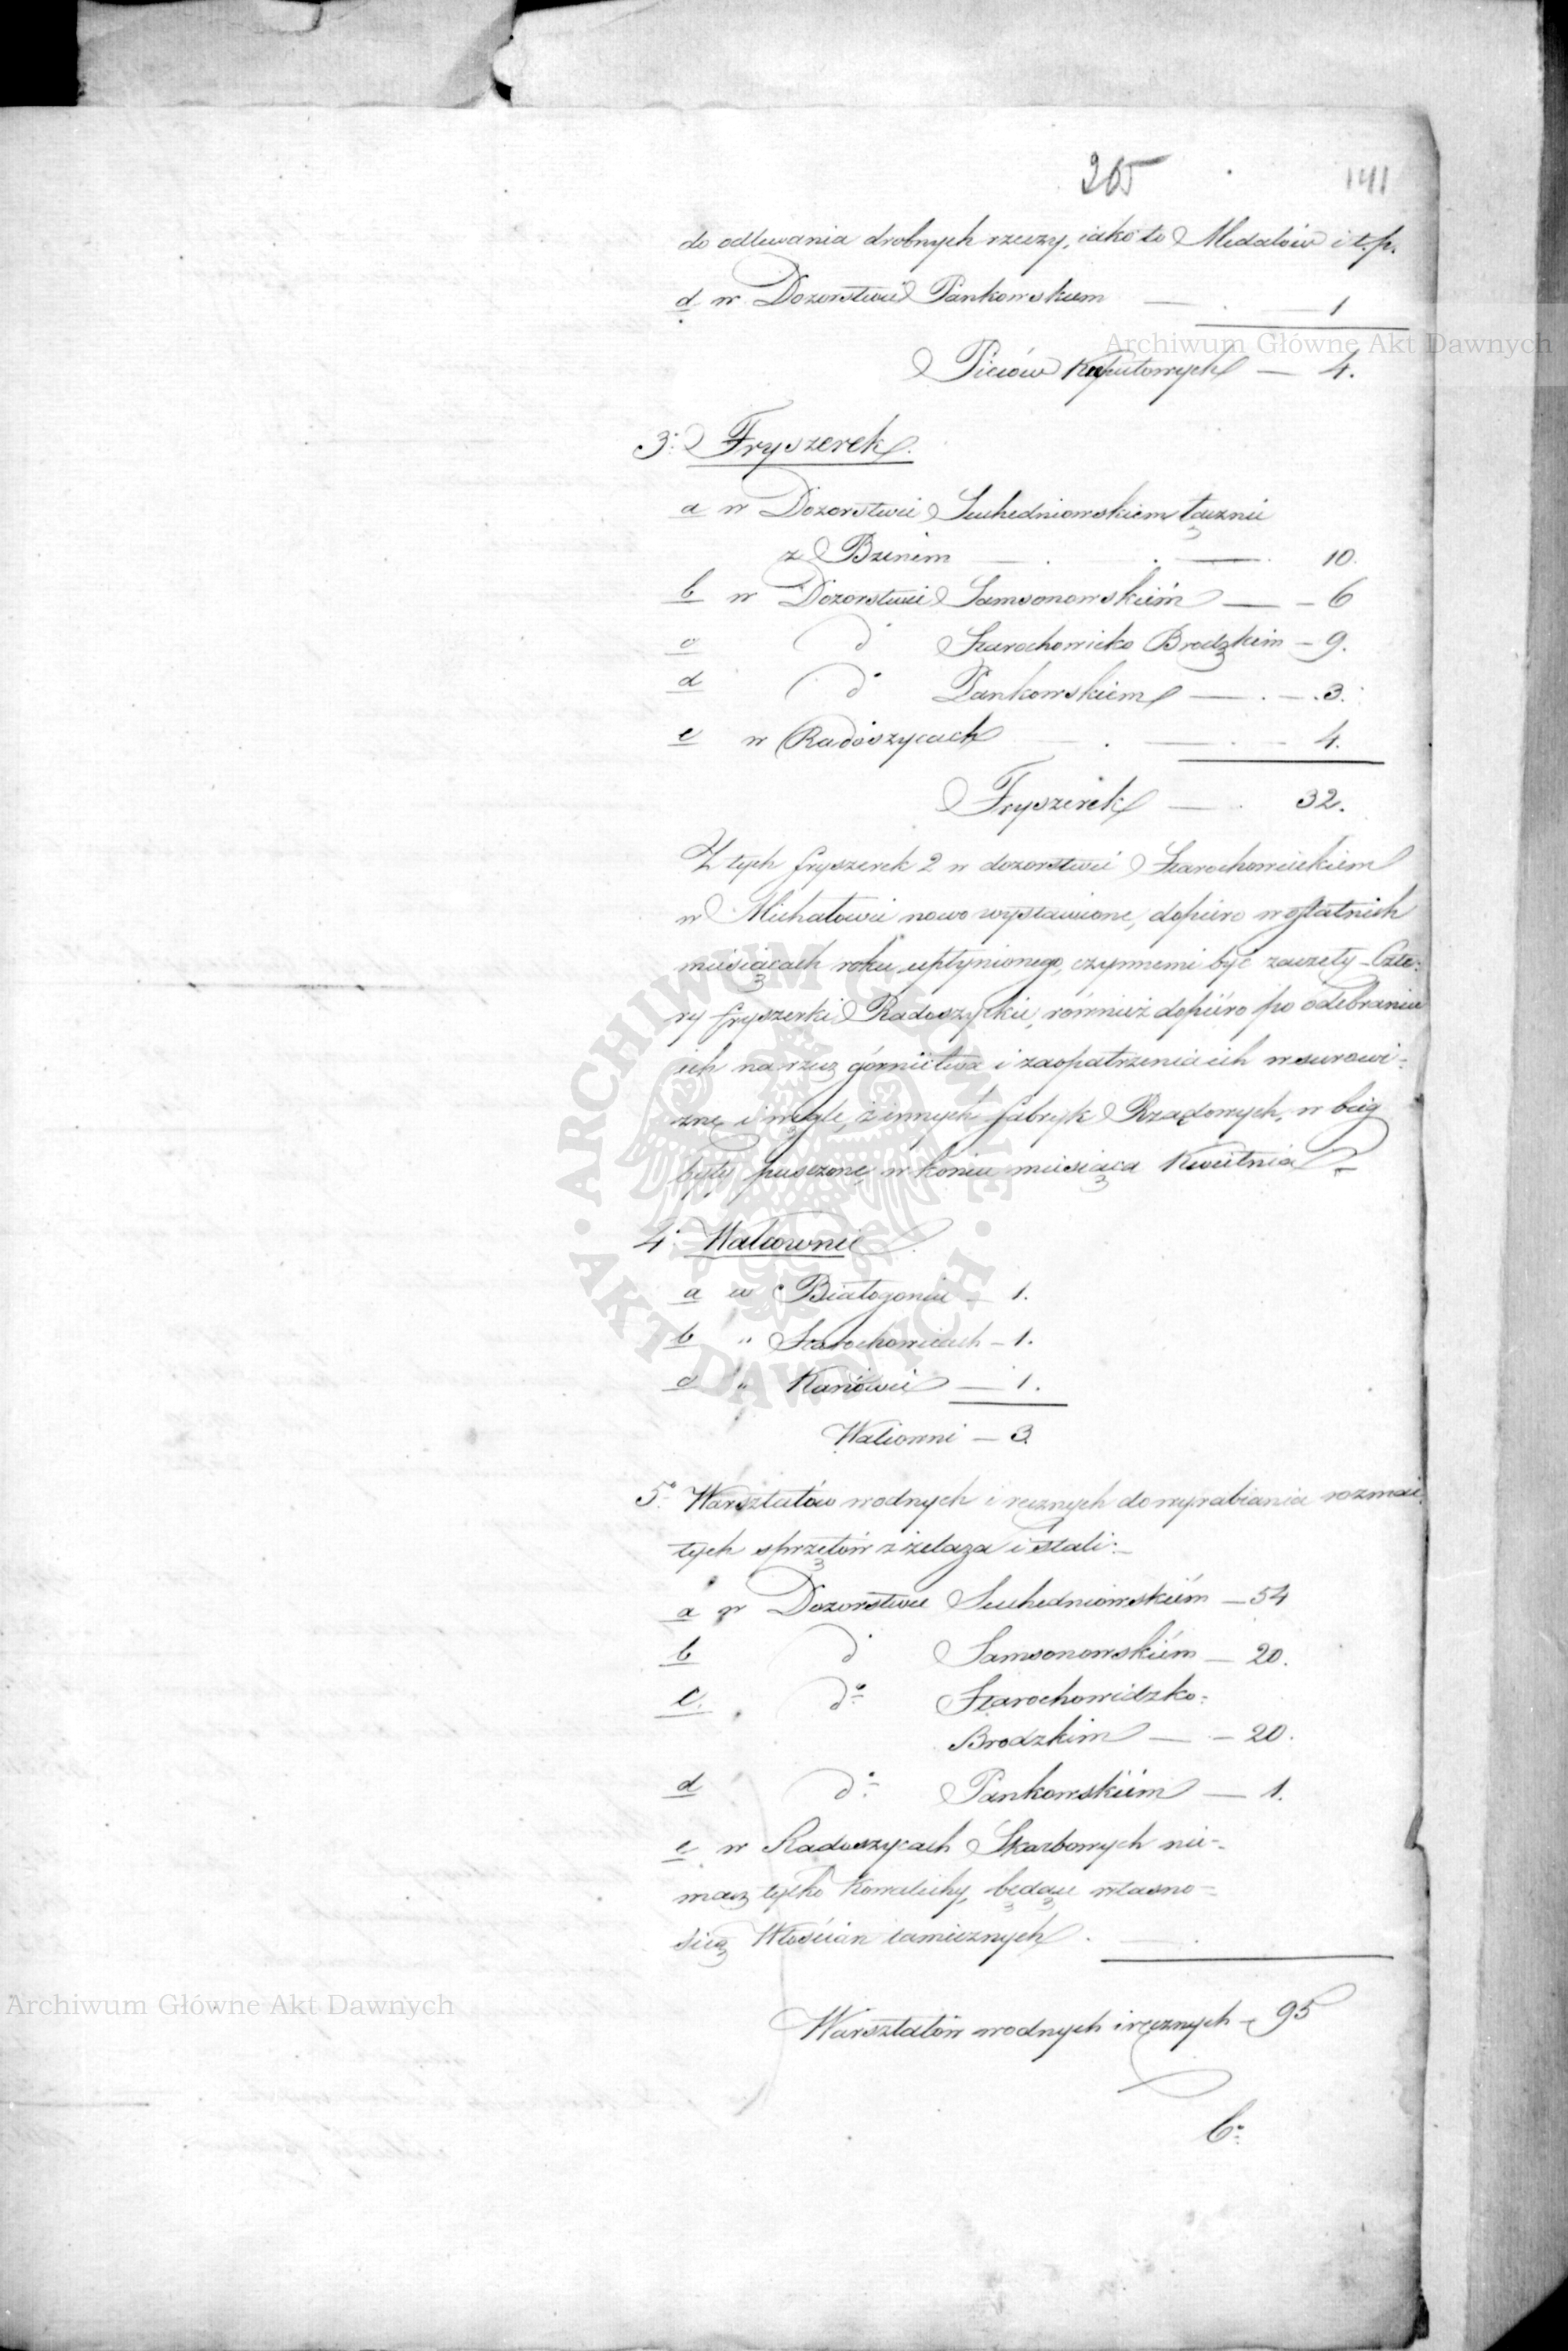 265 141
do odlewania drobnych rzeczy, iako to Medalów i t.p.
d w Dozorstwie Pankowskiem — 1
Archiwum Główne Akt Dawnych
Pieców Kopułowych — 4.
3. Fryszerek.
a w Dozorstwie Suchedniowskiem łącznie
z Bzinem — 10.
b w Dozorstwie Samsonowskiém — 6
c d° Starachowicko Brodzkim — 9.
d d° Pankowskiem — 3.
e w Radoszycach — 4.
Fryszerek — 32.
Z tych fryszerek 2 w dozorstwie Starachowickiem
w Michałowie nowo wystawione, dopiero w ostatnich
miesiącach roku upłynionego, czynnemi być zaczęły – Czte-
ry fryszerki Radoszyckie, również dopiéro po odebraniu
ich na rzecz górnictwa i zaopatrzenia ich w surowi-
znę i węgle, z innych fabryk Rządowych, w bieg
były puszczone w końcu miesiąca Kwietnia
4. Walcownie
a w Białogonie — 1.
b " Starachowicach — 1.
c " Kaniowie — 1.
Walcowni — 3.
5. Warsztatów wodnych i ręcznych do wyrabiania rozmai-
tych sprzętów z żelaza i stali:
a w Dozorstwie Suchedniowskiém — 54
b d° Samsonowskiém — 20.
c. d° Starachowidzko-
Brodzkim — 20.
d d° Pankowskiém — 1.
e w Radoszycach Skarbowych nie-
masz tylko Kowalichy, będące własno-
ścią Włościan tamecznych.
Archiwum Główne Akt Dawnych
Warsztatów wodnych i ręcznych — 95
6.
ARCHIWUM GŁÓWNE · AKT DAWNYCH ·